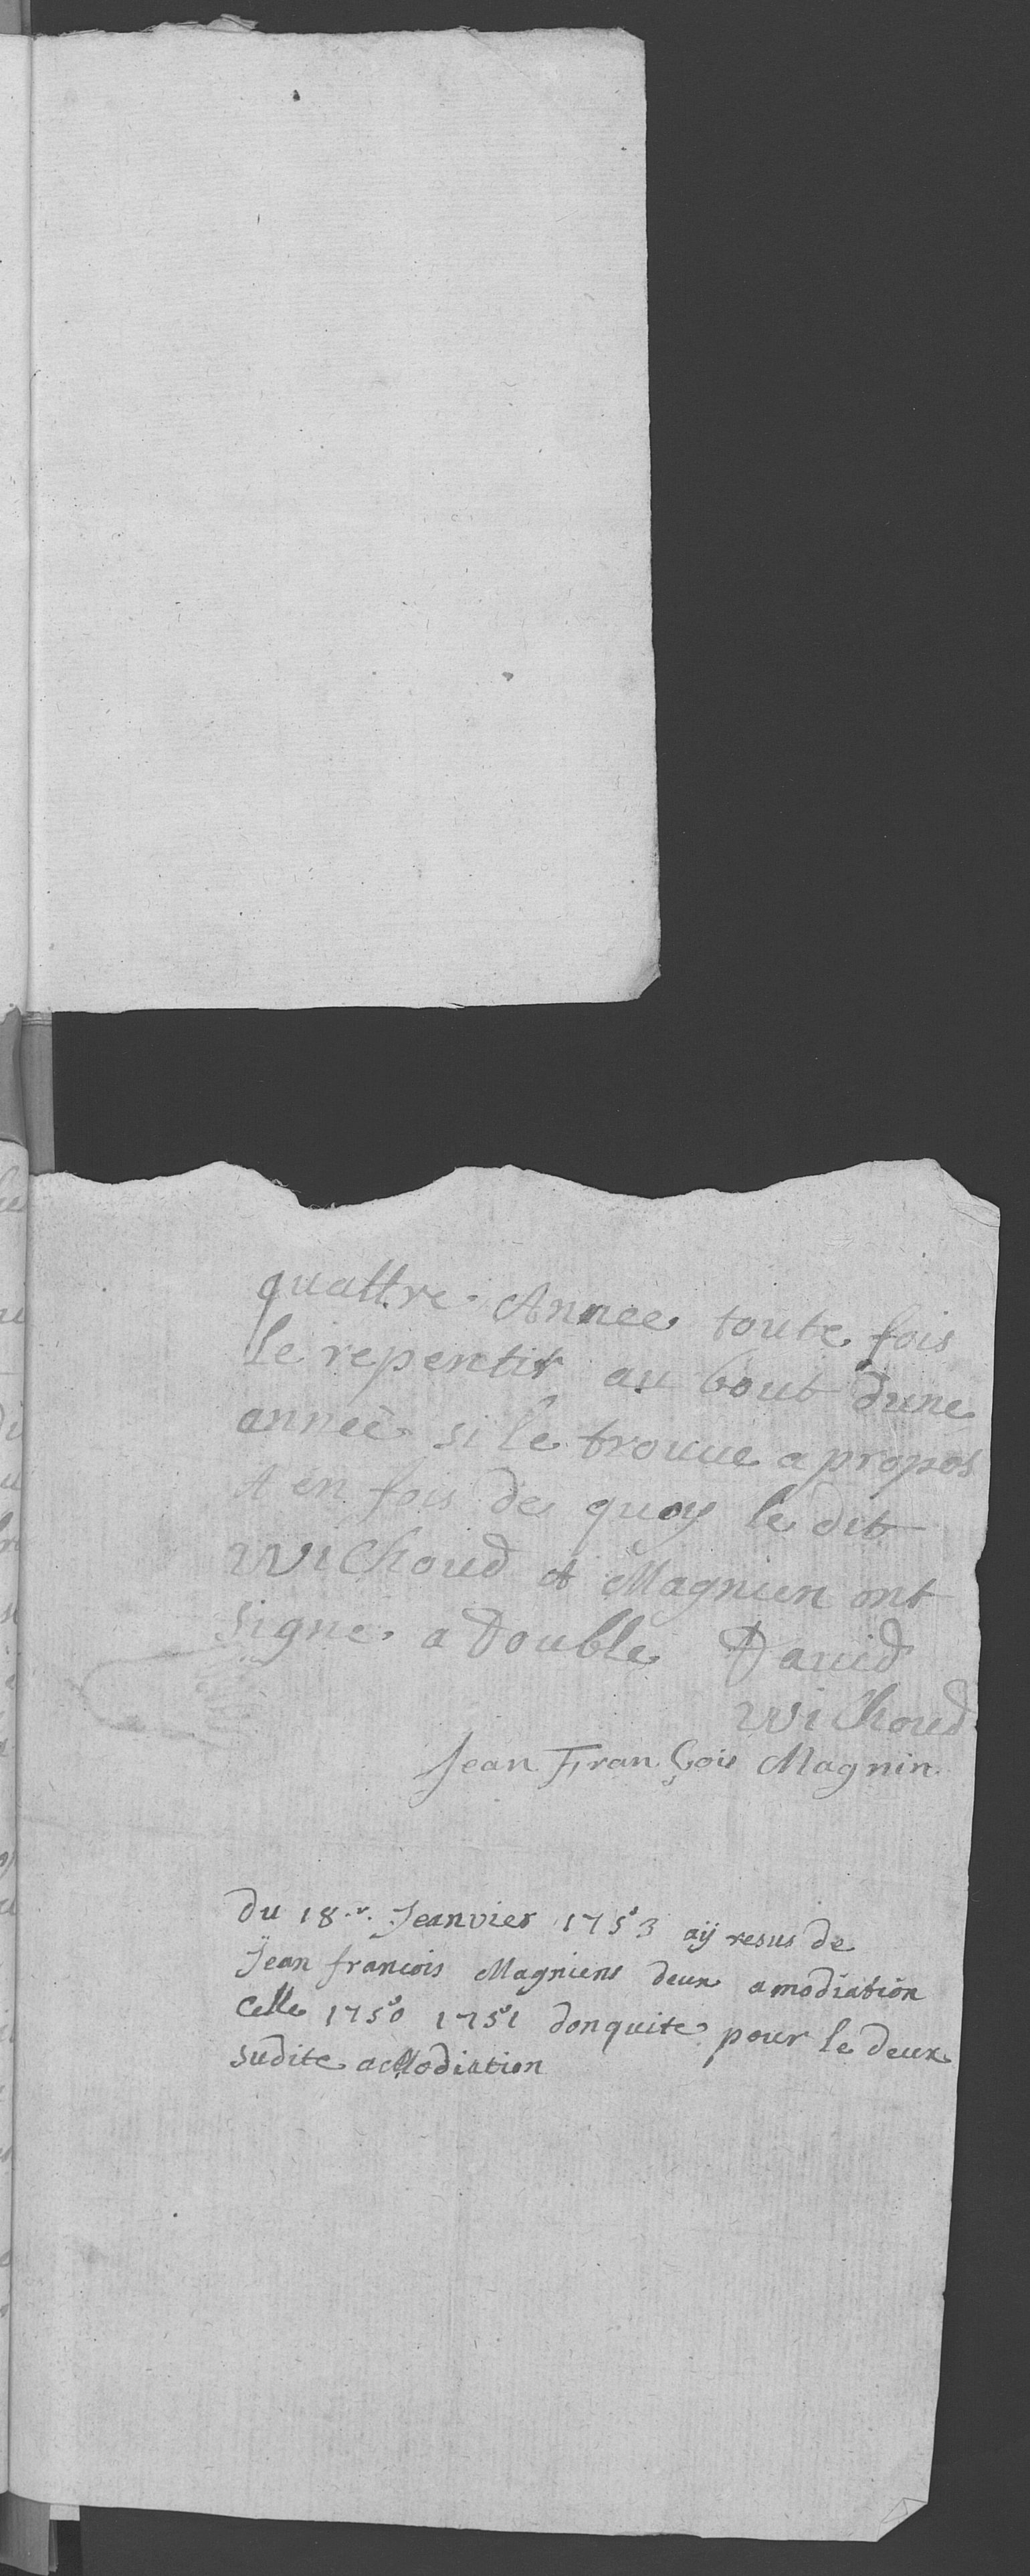 quattre Annee toute fois
le repentir au bout dune
anneè si le trouue a propos
et en fois de quoy le dit
Wichoud et Magnien ont
signe a Double David
Wichoud
Jean François Magnin
du 18.r. Jeanvier 1753 aÿ resus de
Jean francois Magniens deux amodiation
Celle 1750 1751 donquite pour le deux
sudite amodiation